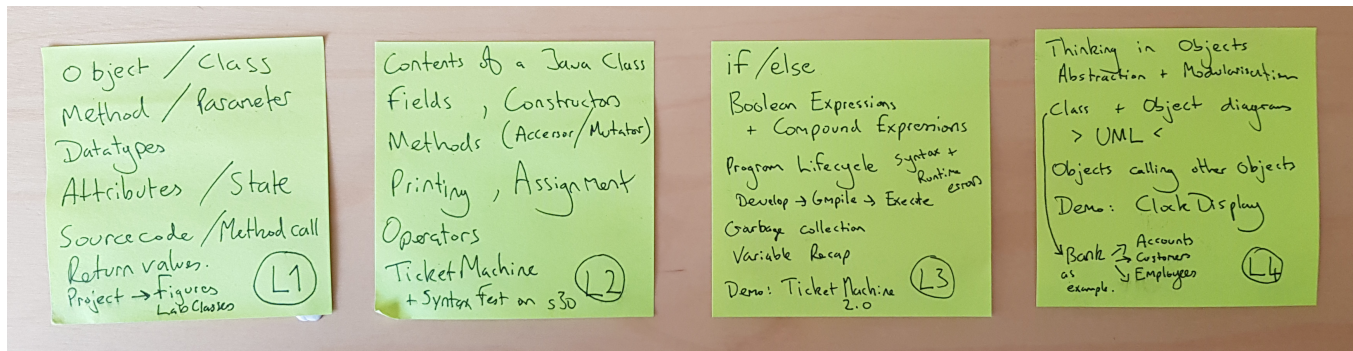 Object / Class
Method / Parameter
Datatypes
Attributes / State
Sourcecode / Method call
Return values.
Project → Figures
LabClasses
L1
Contents of a Java Class
Fields, Constructors
Methods (Accessor/Mutator)
Printing, Assignment
Operators
TicketMachine
+ Syntax Test on s30
L2
if/else
Boolean Expressions
+ Compound Expressions
Program Lifecycle Syntax +
Runtime
errors
Develop → Compile → Execute
Garbage collection
Variable Recap
Demo: TicketMachine
2.0
L3
Thinking in Objects
Abstraction + Modularisation
Class + Object diagrams
> UML <
Objects calling other Objects
Demo: ClockDisplay
Bank → Accounts
→ Customers
→ Employees
as
example.
L4